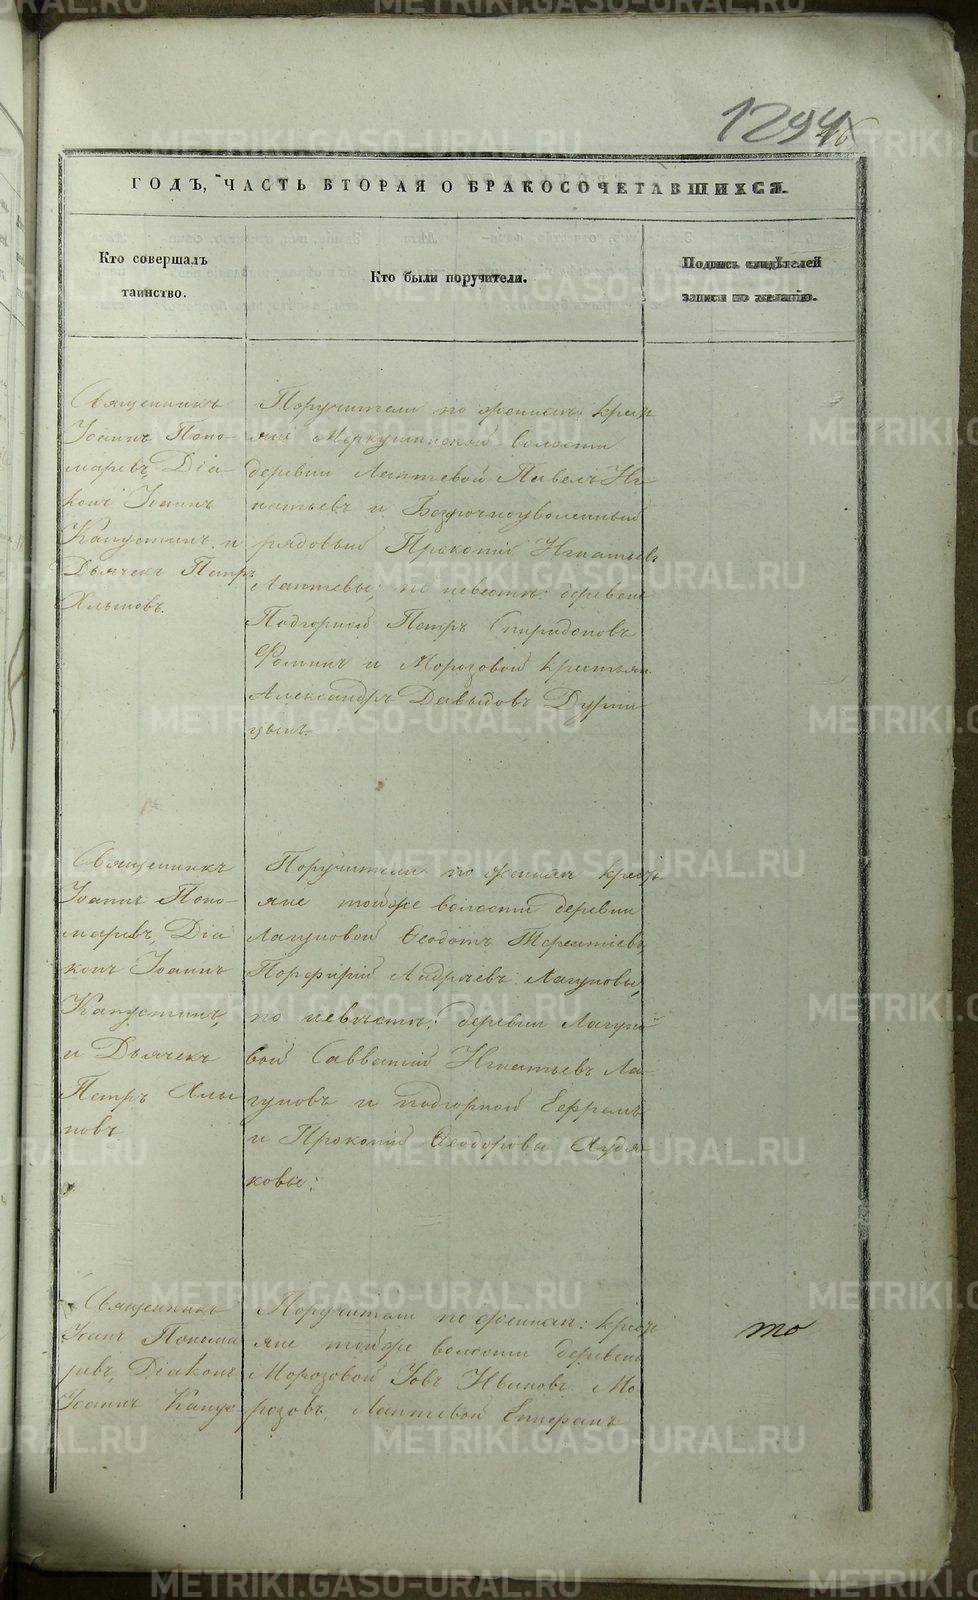 1294
ГОДЪ, ЧАСТЬ ВТОРАЯ О БРАКОСОЧЕТАВШИХСЯ.
Кто совершалъ
таинство.
Кто были поручители.
Подпись свидѣтелей
записи по желанію.
Священникъ
Іоаннъ Поно-
маревъ, Діа
конъ Іоаннъ
Капустинъ и
Дьячекъ Петръ
Поручители по женихѣ: крест
яне Меркушинской волости
деревни Лаптевой Павелъ Иг
натьевъ и Безсрочноуволенный
рядовый Прокопій Игнатьевъ
Лаптевы; по невестѣ: деревень
Подгорной Петръ Спиридоновъ
Фоминъ и Морозовой крестьян.
Александръ Давыдовъ
цынъ.
Священникъ
Іоаннъ Поно-
маревъ, Діа
конъ Іоаннъ
Капустинъ,
и Дьячекъ
Петръ
новъ
Поручители по женихѣ крест
яне тойже волости деревни
Лагуновой Ѳеодотъ Терентіевъ,
Порфирій Андреевъ Лагуновы,
по невѣстѣ: деревни Лагуно
вой Савватій Игнатьевъ Ла-
гуновъ и подгорной Ефремъ
и Прокопій Ѳеодоровы Худя
ковы:
Священникъ
Іоанъ Понома
ревъ, Діаконъ
Іоаннъ Капус
Поручители по женихѣ: крест
яне тойже волости деревень
Морозовой Іовъ Ивановъ Мо
розовъ, Лаптевой
то
METRIKI.GASO-URAL.RU